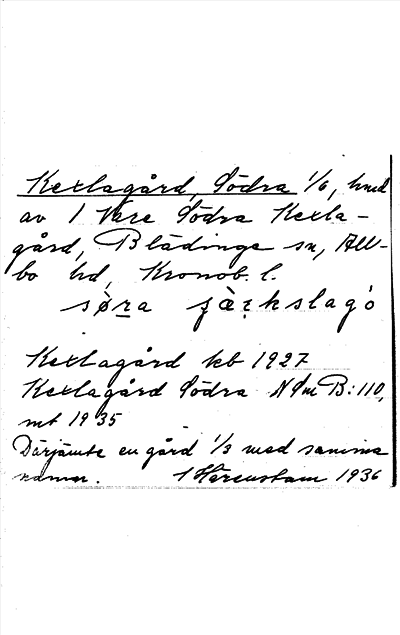 Kexlagård, Södra 1/6, hmd
av 1 Nere Södra Kexla-
gård, Blädinge sn, All-
bo hd, Kronob. l.
Kexlagård kb 1927
Kexlagård Södra B: 110,
mt 1935
Därjämte en gård 1/3 med samma
namn. 1936